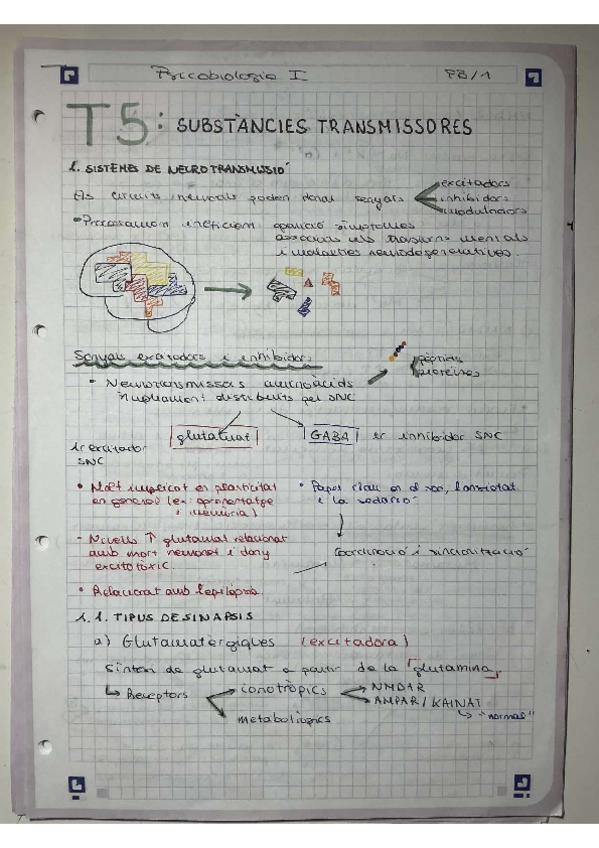 Psicobiologia I PB/1
T5: SUBSTÀNCIES TRANSMISSORES
1. SISTEMES DE NEUROTRANSMISSIÓ
Els circuits neuronals poden donar senyals
excitadors
inhibidors
moduladors
• Processament ineficient aparició símptomes
associats als trastorns mentals
i malalties neurodegeneratives.
Senyals excitadors i inhibidors
pèptids
proteïnes
• Neurotransmissors aminoàcids
àmpliament distribuïts pel SNC
glutamat
GABA 1r inhibidor SNC
1r excitador
SNC
• Molt implicat en plasticitat
en general (ex: aprenentatge
i memòria)
• Paper clau en el son, l'ansietat
i la sedació
- Nivells ↑ glutamat relacionat
amb mort neuronal i dany
excitotòxic.
Coordinació i sincronització
• Relacionat amb l'epilèpsia.
1.1. TIPUS DE SINAPSIS
a) Glutamatèrgiques (excitadora)
Síntesi de glutamat a partir de la glutamina
↳ Receptors
ionotròpics
NMDAR
AMPAR/KAINAT
↳ "normals"
metabotròpics